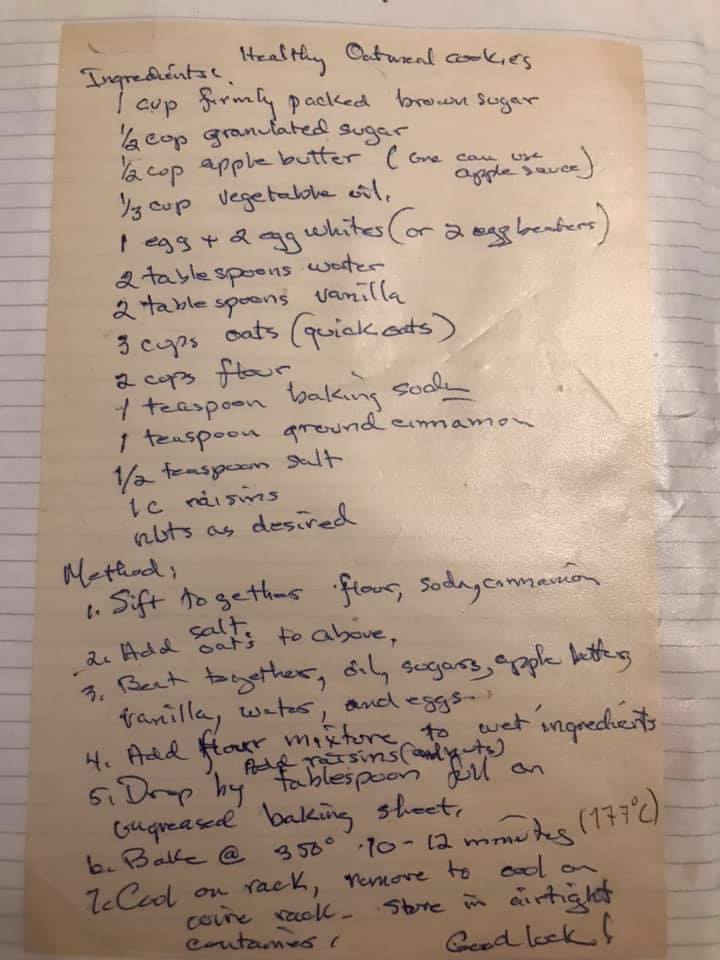 Healthy Oatmeal cookies
Ingredients:
1 cup firmly packed brown sugar
1/2 cup granulated sugar
1/2 cup apple butter (one can use apple sauce)
1/3 cup vegetable oil,
1 egg + 2 egg whites (or 2 egg beaters)
2 tablespoons water
2 tablespoons vanilla
3 cups oats (quick oats)
2 cups flour
1 teaspoon baking soda
1 teaspoon ground cinnamon
1/2 teaspoon salt
1c raisins
nuts as desired
Method;
1. Sift together flour, soda, cinnamon
salt.
2. Add oats to above,
3. Beat together, oil, sugars, apple butter,
vanilla, water, and eggs-
4. Add flour mixture to wet ingredients
Add raisins (and nuts)
5. Drop by tablespoon full on
ungreased baking sheet.
6. Bake @ 350° 10-12 minutes (177°C)
7. Cool on rack, remove to cool on
wire rack- Store in airtight
containers. Good luck!